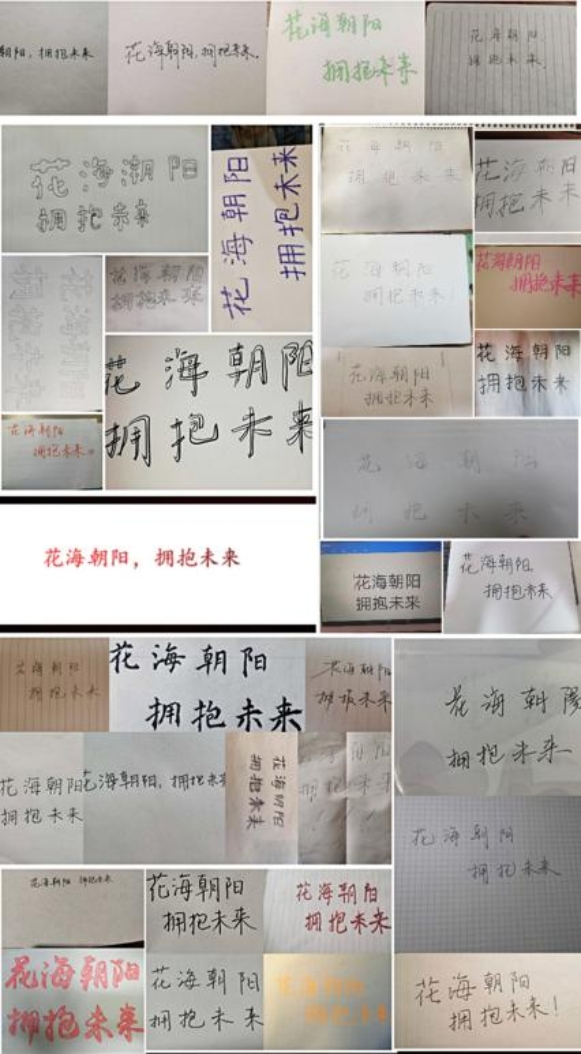 朝阳，拥抱未来
花海朝阳，拥抱未来.
花海朝阳
拥抱未来
花海朝阳
拥抱未来
花海潮阳
拥抱未来
花海朝阳
拥抱未来
花海朝阳
拥抱未来
花海朝阳
拥抱未来
花海朝阳
拥抱未来
花海朝阳
拥抱未来!
花海朝阳
拥抱未来
花海朝阳
拥抱未来
花海朝阳
拥抱未来
花海朝阳
拥抱未来
花海朝阳
拥抱未来
花海朝阳
拥抱未来。
花海朝阳
拥抱未来
花海朝阳，拥抱未来
花海朝阳
拥抱未来
花海朝阳
拥抱未来
花海朝阳
拥抱未来
花海朝阳
拥抱未来
花海朝阳
拥抱未来
花海朝阳
拥抱未来
花海朝阳
拥抱未来
花海朝阳，拥抱未来
花海朝阳
拥抱未来
花海朝阳
拥抱未来
花海朝阳 拥抱未来
花海朝阳
拥抱未来
花海朝阳
拥抱未来
花海朝阳
拥抱未来
花海朝阳
拥抱未来
花海朝阳
拥抱未来!